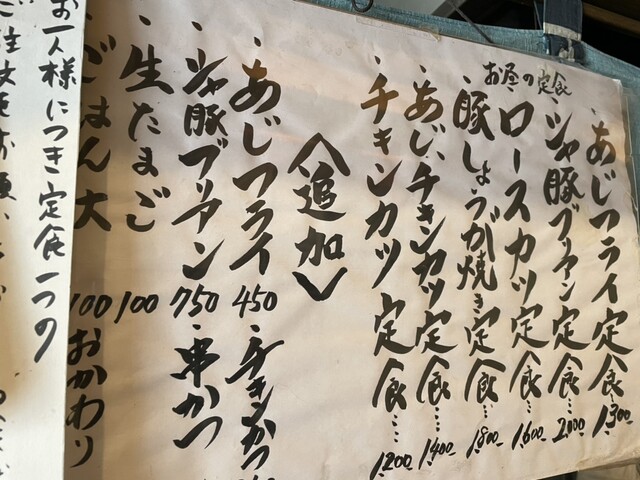 お昼の定食
・あじフライ定食…1,300
・シャ豚ブリアン定食…2,000
・ロースカツ定食…1,600
・豚しょうが焼き定食…1,800
・あじ、チキンカツ定食…1,400
・チキンカツ定食…1,200
〈追加〉
・あじフライ 450
・チキンかつ
・シャ豚ブリアン 750
・串かつ
・生たまご 100
・ごはん大 100
おかわり
お一人様につき定食一つの
ご注文をお願い